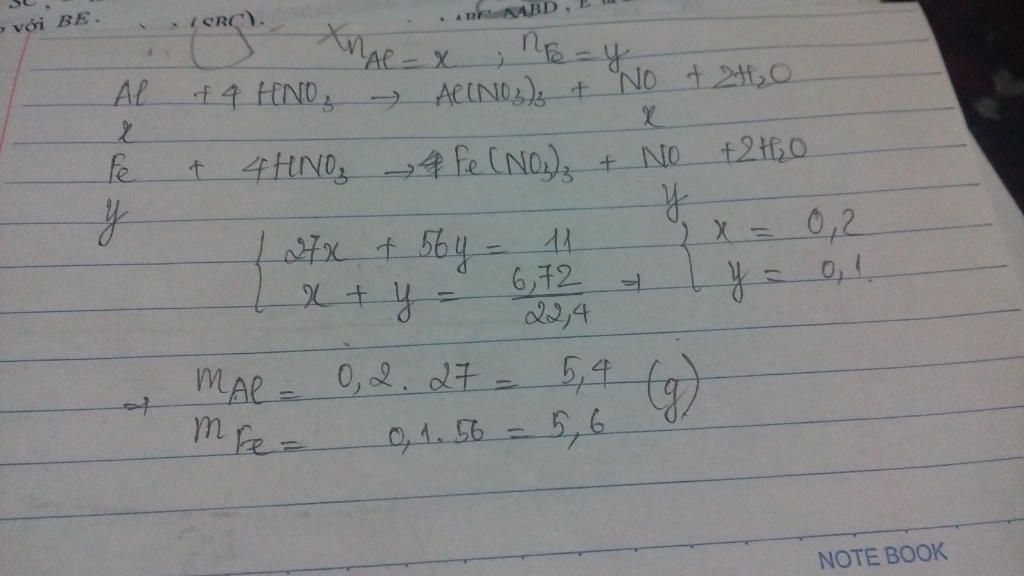 với BE.
(SBC).
ΔABD, E
n_Al = x ; n_Fe = y
Al + 4 HNO₃ → Al(NO₃)₃ + NO + 2H₂O
x x
Fe + 4HNO₃ → Fe(NO₃)₃ + NO + 2H₂O
y y
{ 27x + 56y = 11 { x = 0,2
x + y = 6,72/22,4 → y = 0,1.
→ m_Al = 0,2. 27 = 5,4 (g)
m_Fe = 0,1.56 = 5,6
NOTE BOOK